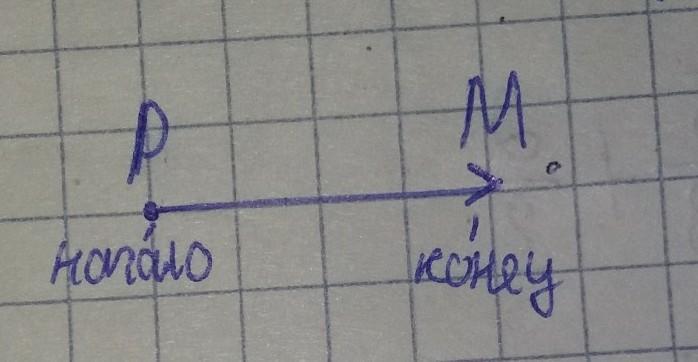 P M
нача́ло ко́нец